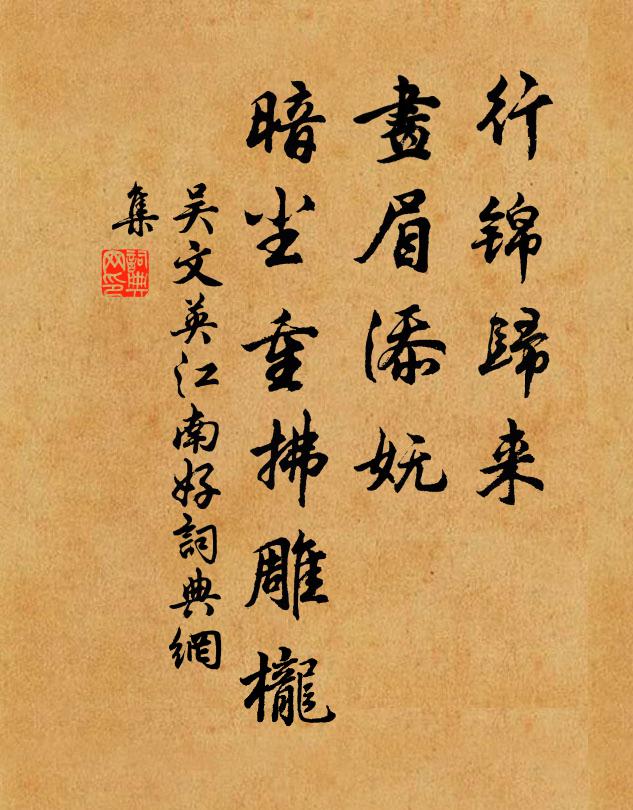 行锦歸来
畫眉添妩
暗尘重拂雕櫳
吴文英江南好詞典網
集
詞典
网印